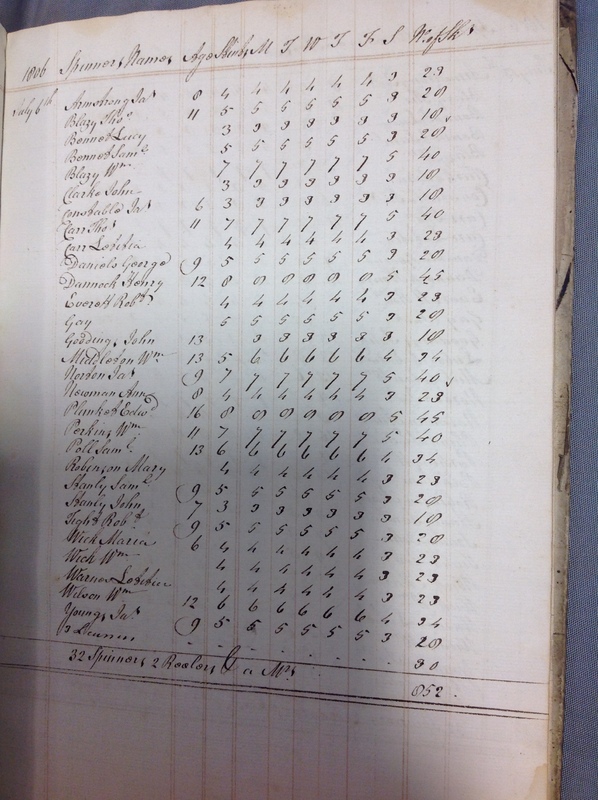 1806 Spinners Names Age Skinˢ M T W T F S Wᵏˢ Skˢ
July 6th Armstrong Jaˢ 8 4 4 4 4 4 4 3 23
Blazy Thoˢ 11 5 5 5 5 5 5 3 28
Bennet Lucy 3 3 3 3 3 3 3 18
Bennet Samˡ 5 5 5 5 5 5 3 28
Blazy Wᵐ 7 7 7 7 7 7 5 40
Clarke John 3 3 3 3 3 3 3 18
Constable Jaˢ 6 3 3 3 3 3 3 3 18
Carr Thoˢ 11 7 7 7 7 7 7 5 40
Carr Letitia 4 4 4 4 4 4 3 23
Daniels George 9 5 5 5 5 5 5 3 28
Dannock Henry 12 8 8 8 8 8 8 5 45
Everett Robᵗ 4 4 4 4 4 4 3 23
Gay 5 5 5 5 5 5 3 28
Gedding, John 13 3 3 3 3 3 3 18
Middleton Wᵐ 13 5 6 6 6 6 6 4 34
Norton Jaˢ 9 7 7 7 7 7 7 5 40
Newman Ann 8 4 4 4 4 4 4 3 23
Plunket Edwᵈ 16 8 8 8 8 8 8 5 45
Perkins Wᵐ 11 7 7 7 7 7 7 5 40
Poll Samˡ 13 6 6 6 6 6 6 4 34
Robinson Mary 4 4 4 4 4 4 3 23
Stanly Samˡ 9 5 5 5 5 5 5 3 28
Stanly John 7 3 3 3 3 3 3 3 18
Robᵗ 9 5 5 5 5 5 5 3 28
Wick Maria 6 4 4 4 4 4 4 3 23
Wick Wᵐ 4 4 4 4 4 4 3 23
Warner 4 4 4 4 4 4 3 23
Wilson Wᵐ 12 6 6 6 6 6 6 4 34
Young Jaˢ 9 5 5 5 5 5 5 3 28
3 Learners 30
32 Spinners 2 Reelers
852